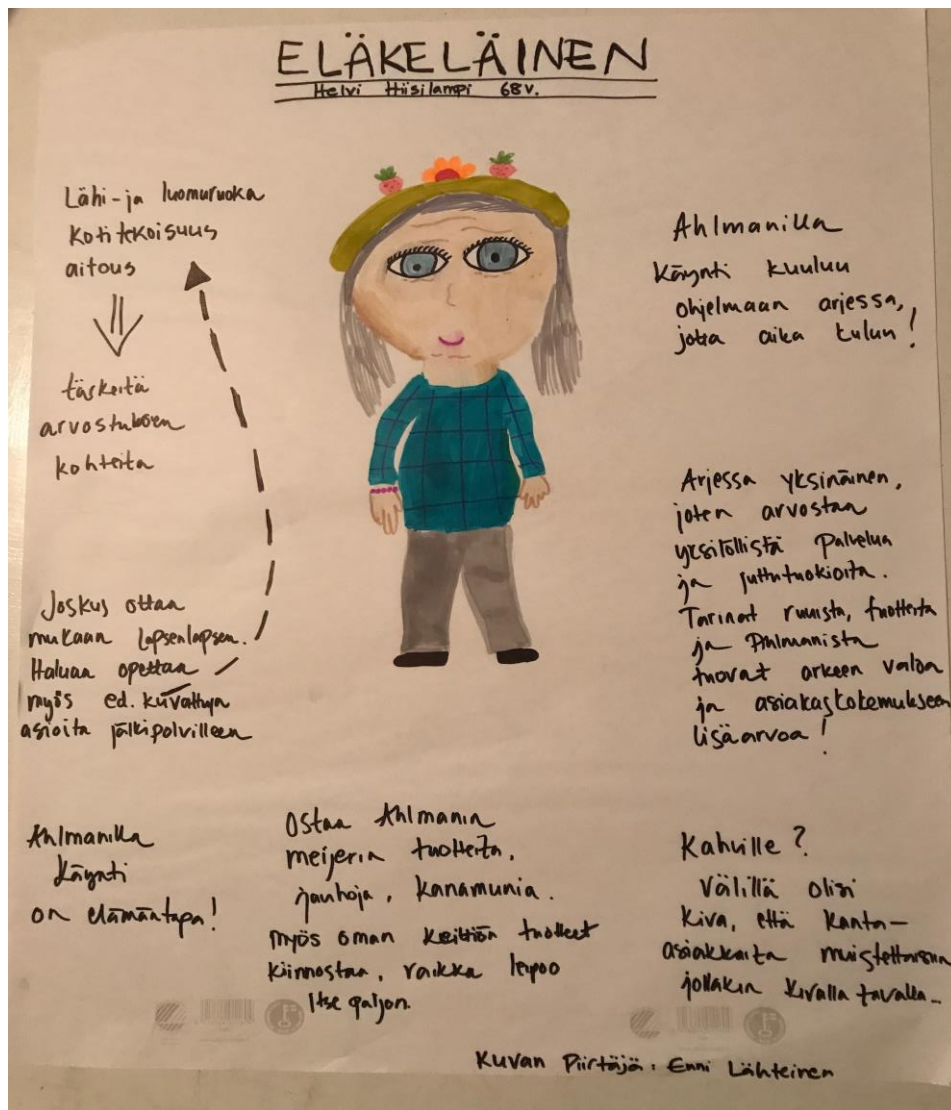 ELÄKELÄINEN
Helvi Hiisilampi 68v.
Lähi-ja luomuruoka
kotitekoisuus
aitous
tärkeitä
arvostuksen
kohteita
Joskus ottaa
mukaan lapsenlapsen.
Haluaa opettaa
myös ed. kuvattuja
asioita jälkipolvilleen
Ahlmanilla
Käynti kuuluu
ohjelmaan arjessa,
jotta aika kuluu!
Arjessa yksinäinen,
joten arvostaa
yksilöllistä palvelua
ja juttutuokioita.
Tarinat ruuista, tuotteita
ja Ahlmanista
tuovat arkeen valoa
ja asiakaskokemukseen
lisäarvoa!
Ahlmanilla
käynti
on elämäntapa!
Ostaa Ahlmanin
meijerin tuotteita,
jauhoja, kanamunia.
myös oman keittiön tuotteet
kiinnostaa, vaikka leipoo
itse paljon.
Kahville?
Välillä olisi
kiva, että kanta-
asiakkaita muistettaisiin
jollakin kivalla tavalla...
Kuvan Piirtäjä: Enni Lähteinen